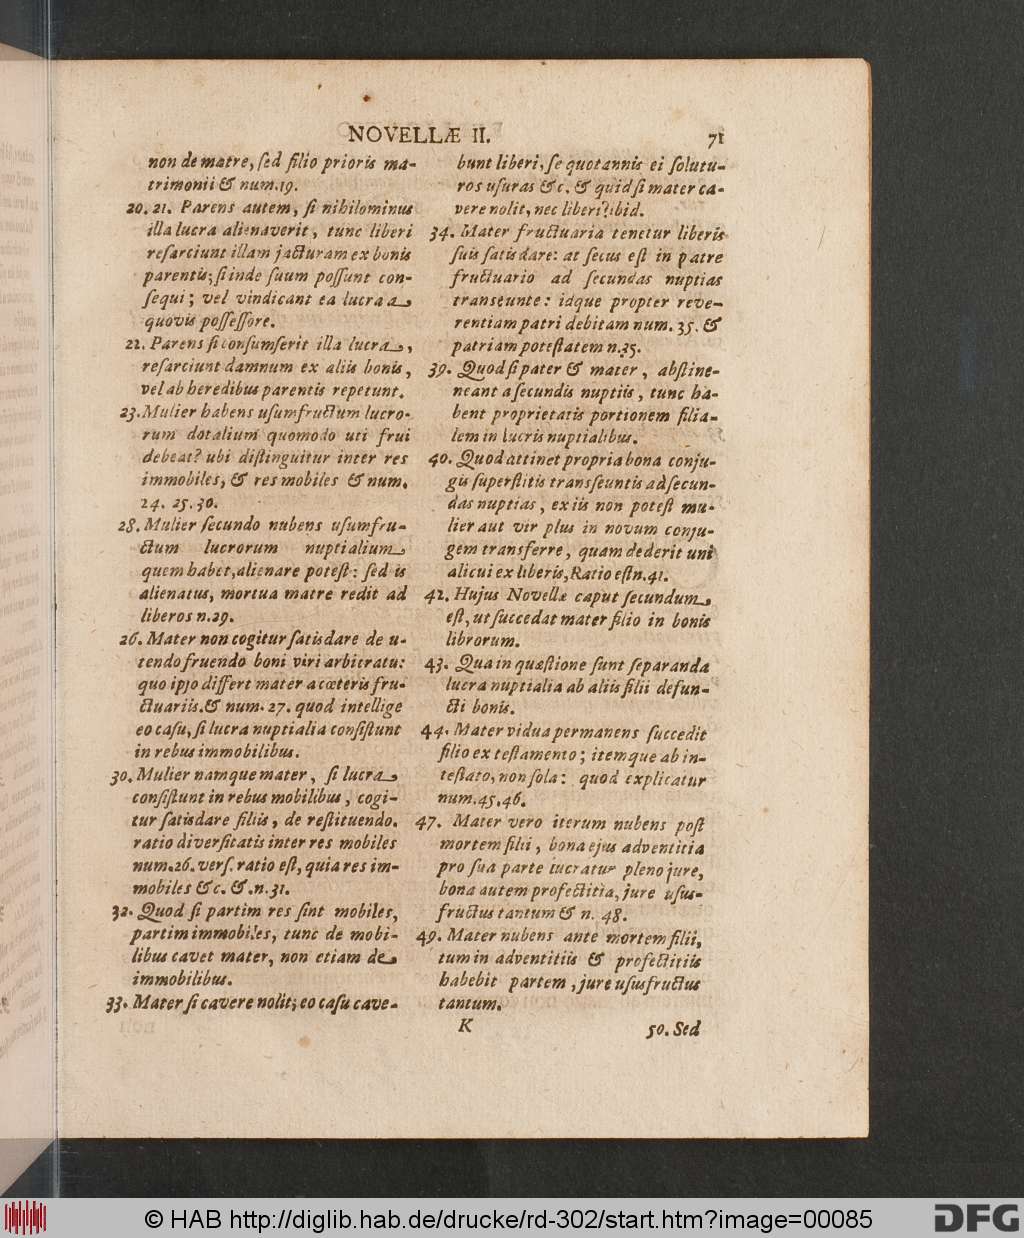 NOVELLÆ II. 71
non de matre, ſed filio prioris ma-
trimonii & num.19.
20. 21. Parens autem, ſi nihilominus
illa lucra alienaverit, tunc liberi
reſarciunt illam jacturam ex bonis
parentis; ſi inde ſuum poſſunt con-
ſequi; vel vindicant ea lucra a
quovis poſſeſſore.
22. Parens ſi conſumſerit illa lucra,
reſarciunt damnum ex aliis bonis,
vel ab heredibus parentis repetunt.
23. Mulier habens uſumfructum lucro-
rum dotalium quomodo uti frui
debeat? ubi diſtinguitur inter res
immobiles, & res mobiles & num.
24. 25. 30.
28. Mulier ſecundo nubens uſumfru-
ctum lucrorum nuptialium
quem habet, alienare poteſt: ſed is
alienatus, mortua matre redit ad
liberos n.29.
26. Mater non cogitur ſatisdare de u-
tendo fruendo boni viri arbitratu:
quo ipſo differt mater a cæteris fru-
ctuariis. & num. 27. quod intellige
eo caſu, ſi lucra nuptialia conſiſtunt
in rebus immobilibus.
30. Mulier namque mater, ſi lucra
conſiſtunt in rebus mobilibus, cogi-
tur ſatisdare filiis, de reſtituendo.
ratio diverſitatis inter res mobiles
num.26. verſ. ratio eſt, quia res im-
mobiles &c. &.n.31.
32. Quod ſi partim res ſint mobiles,
partim immobiles, tunc de mobi-
libus cavet mater, non etiam de
immobilibus.
33. Mater ſi cavere nolit; eo caſu cave-
bunt liberi, ſe quotannis ei ſolutu-
ros uſuras &c. & quid ſi mater ca-
vere nolit, nec liberi? ibid.
34. Mater fructuaria tenetur liberis
ſuis ſatisdare: at ſecus eſt in patre
fructuario ad ſecundas nuptias
transeunte: idque propter reve-
rentiam patri debitam num. 35. &
patriam poteſtatem n.35.
39. Quod ſi pater & mater, abſtine-
neant a ſecundis nuptiis, tunc ha-
bent proprietatis portionem filia-
lem in lucris nuptialibus.
40. Quod attinet propria bona conju-
gis ſuperſtitis transeuntis ad ſecun-
das nuptias, ex iis non poteſt mu-
lier aut vir plus in novum conju-
gem transferre, quam dederit uni
alicui ex liberis, Ratio eſt n.41.
42. Hujus Novellæ caput ſecundum
eſt, ut ſuccedat mater filio in bonis
librorum.
43. Qua in quæſtione ſunt ſeparanda
lucra nuptialia ab aliis filii defun-
cti bonis.
44. Mater vidua permanens ſuccedit
filio ex teſtamento; itemque ab in-
teſtato, non ſola: quod explicatur
num.45.46.
47. Mater vero iterum nubens poſt
mortem filii, bona ejus adventitia
pro ſua parte lucratur pleno jure,
bona autem profectitia, jure uſus-
fructus tantum & n. 48.
49. Mater nubens ante mortem filii,
tum in adventitiis & profectitiis
habebit partem, jure uſusfructus
tantum.
K 50. Sed
© HAB http://diglib.hab.de/drucke/rd-302/start.htm?image=00085
DFG